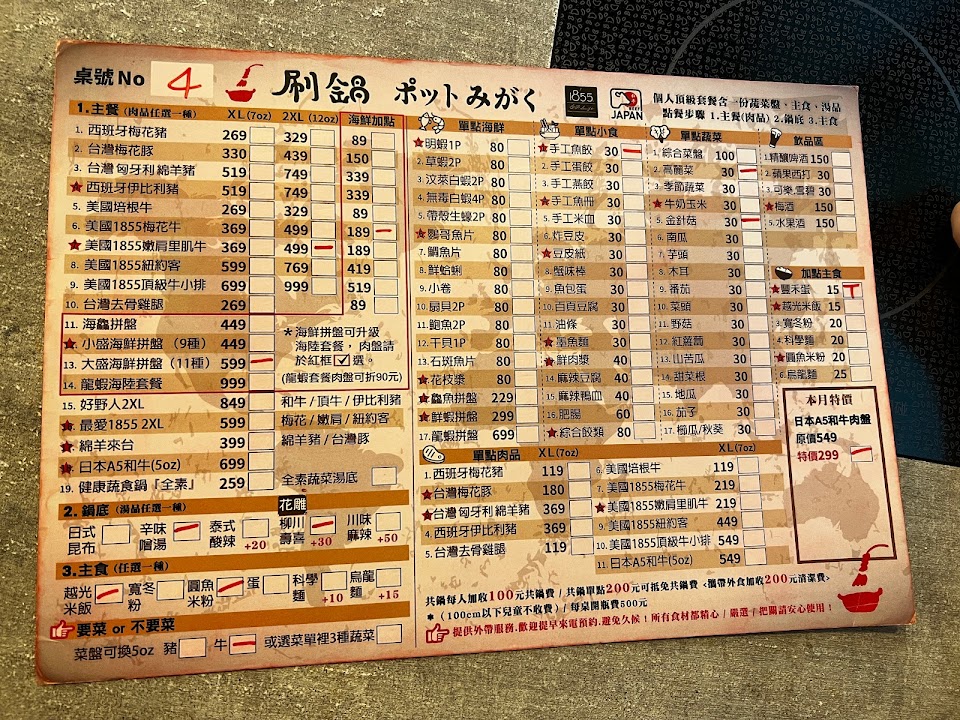 桌號No 4 刷鍋 ポットみがく 1855 BEEF JAPAN
個人頂級套餐含一份蔬菜盤、主食、湯品
點餐步驟 1.主餐(肉品) 2.鍋底 3.主食
1.主餐 (肉品任選一種) XL(7oz) 2XL(12oz) 海鮮加點
1. 西班牙梅花豬 269 329 89
2. 台灣梅花豚 330 439 150
3. 台灣匈牙利綿羊豬 519 749 339
★西班牙伊比利豬 519 749 339
5. 美國培根牛 269 329 89
6. 美國1855梅花牛 369 499 189
★美國1855嫩肩里肌牛 369 499 189
8. 美國1855紐約客 599 769 419
9. 美國1855頂級牛小排 699 999 519
10. 台灣去骨雞腿 269 89
11. 海鱻拼盤 449
★小盛海鮮拼盤 (9種) 449
13. 大盛海鮮拼盤 (11種) 599
14. 龍蝦海陸套餐 999
*海鮮拼盤可升級
海陸套餐, 肉盤請
於紅框☑選。
(龍蝦套餐肉盤可折90元)
15. 好野人2XL 849 和牛/頂牛/伊比利豬
★最愛1855 2XL 599 梅花/嫩肩/紐約客
★綿羊來台 399 綿羊豬/台灣豚
★日本A5和牛(5oz) 699
19. 健康蔬食鍋「全素」 259 全素蔬菜湯底
2. 鍋底 (湯品任選一種) 花雕
日式昆布 辛味噌湯 泰式酸辣 +20 柳川壽喜 +30 川味麻辣 +50
3.主食 (任選一種)
越光米飯 寬冬粉 圓魚米粉 蛋 科學麵 +10 烏龍麵 +15
要菜 or 不要菜
菜盤可換5oz 豬 牛 或選菜單裡3種蔬菜
單點海鮮
★明蝦1P 80
2. 草蝦2P 80
3. 汶萊白蝦2P 80
4. 無毒白蝦4P 80
5. 帶殼生蠔2P 80
★鸚哥魚片 80
7. 鯛魚片 80
8. 鮮蛤蜊 80
9. 小卷 80
10. 扇貝2P 80
11. 鮑魚2P 80
12. 干貝1P 80
13. 石斑魚片 80
★花枝漿 80
★鱻魚拼盤 229
★鮮蝦拼盤 299
17. 龍蝦拼盤 699
單點小食
★手工魚餃 30
2. 手工蛋餃 30
3. 手工燕餃 30
★手工魚冊 30
5. 手工米血 30
6. 炸豆皮 30
★豆皮紙 30
8. 蟹味棒 30
9. 魚包蛋 30
10. 百頁豆腐 30
11. 油條 30
★墨魚麵 30
★鮮肉漿 40
14. 麻辣豆腐 40
15. 麻辣鴨血 40
16. 肥腸 60
★綜合餃類 80
單點蔬菜
1. 綜合菜盤 100
2. 高麗菜 30
3. 季節蔬菜 30
★牛奶玉米 30
5. 金針菇 30
6. 南瓜 30
7. 芋頭 30
8. 木耳 30
9. 番茄 30
10. 菜頭 30
11. 野菇 30
12. 紅蘿蔔 30
13. 山苦瓜 30
14. 甜菜根 30
15. 地瓜 30
16. 茄子 30
17. 櫛瓜/秋葵 30
飲品區
1.精釀啤酒 150
2.蘋果西打 30
3.可樂.雪碧 30
★梅酒 150
5.水果酒 150
加點主食
★豐禾蛋 15
★越光米飯 15
3. 寬冬粉 20
4.科學麵 20
★圓魚米粉 20
6.烏龍麵 25
本月特價
日本A5和牛肉盤
原價549
特價299
單點肉品 XL(7oz) XL(7oz)
1. 西班牙梅花豬 119
★台灣梅花豚 180
★台灣匈牙利綿羊豬 369
4. 西班牙伊比利豬 369
5. 台灣去骨雞腿 119
6. 美國培根牛 119
7. 美國1855梅花牛 219
★美國1855嫩肩里肌牛 219
9. 美國1855紐約客 449
10. 美國1855頂級牛小排 549
11. 日本A5和牛(5oz) 549
共鍋每人加收100元共鍋費 / 共鍋單點200元可抵免共鍋費 <攜帶外食加收200元清潔費>
*(100cm以下兒童不收費) / 每桌開瓶費500元
提供外帶服務.歡迎提早來電預約.避免久候!所有食材都精心/嚴選/把關請安心使用!